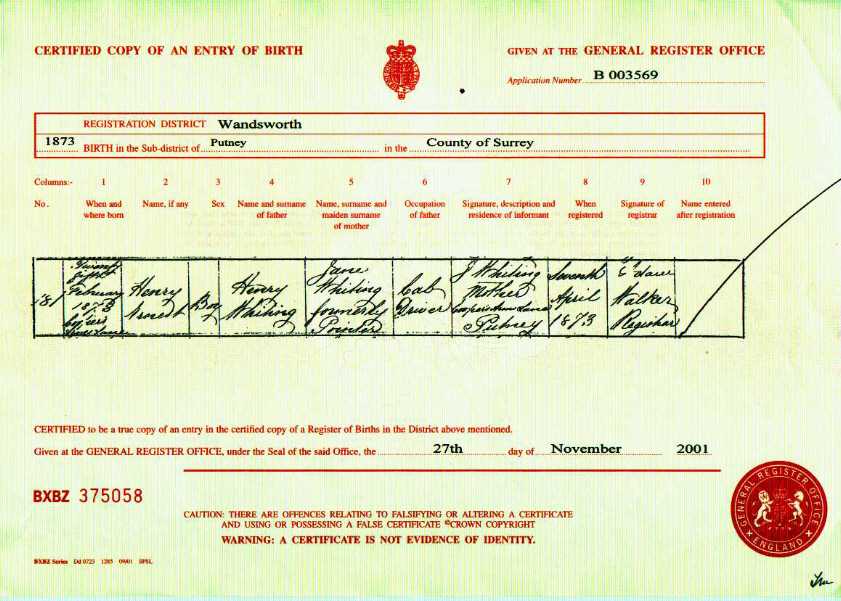 CERTIFIED COPY OF AN ENTRY OF BIRTH
GIVEN AT THE GENERAL REGISTER OFFICE
Application Number B 003569
REGISTRATION DISTRICT Wandsworth
1873 BIRTH in the Sub-district of Putney in the County of Surrey
Columns:- 1 2 3 4 5 6 7 8 9 10
No. When and where born Name, if any Sex Name and surname of father Name, surname and maiden surname of mother Occupation of father Signature, description and residence of informant When registered Signature of registrar Name entered after registration
181
February
1873
Henry
Ernest
Boy
Henry
Whiting
Jane
Whiting
formerly
Pointer
Cab
Driver
J Whiting
Mother
Putney
Seventh
April
1873
Walker
Registrar
CERTIFIED to be a true copy of an entry in the certified copy of a Register of Births in the District above mentioned.
Given at the GENERAL REGISTER OFFICE, under the Seal of the said Office, the 27th day of November 2001
BXBZ 375058
CAUTION: THERE ARE OFFENCES RELATING TO FALSIFYING OR ALTERING A CERTIFICATE
AND USING OR POSSESSING A FALSE CERTIFICATE ©CROWN COPYRIGHT
WARNING: A CERTIFICATE IS NOT EVIDENCE OF IDENTITY.
BXBZ Series Dd 0723 1205 09/01 SPSL
GENERAL REGISTER OFFICE
ENGLAND